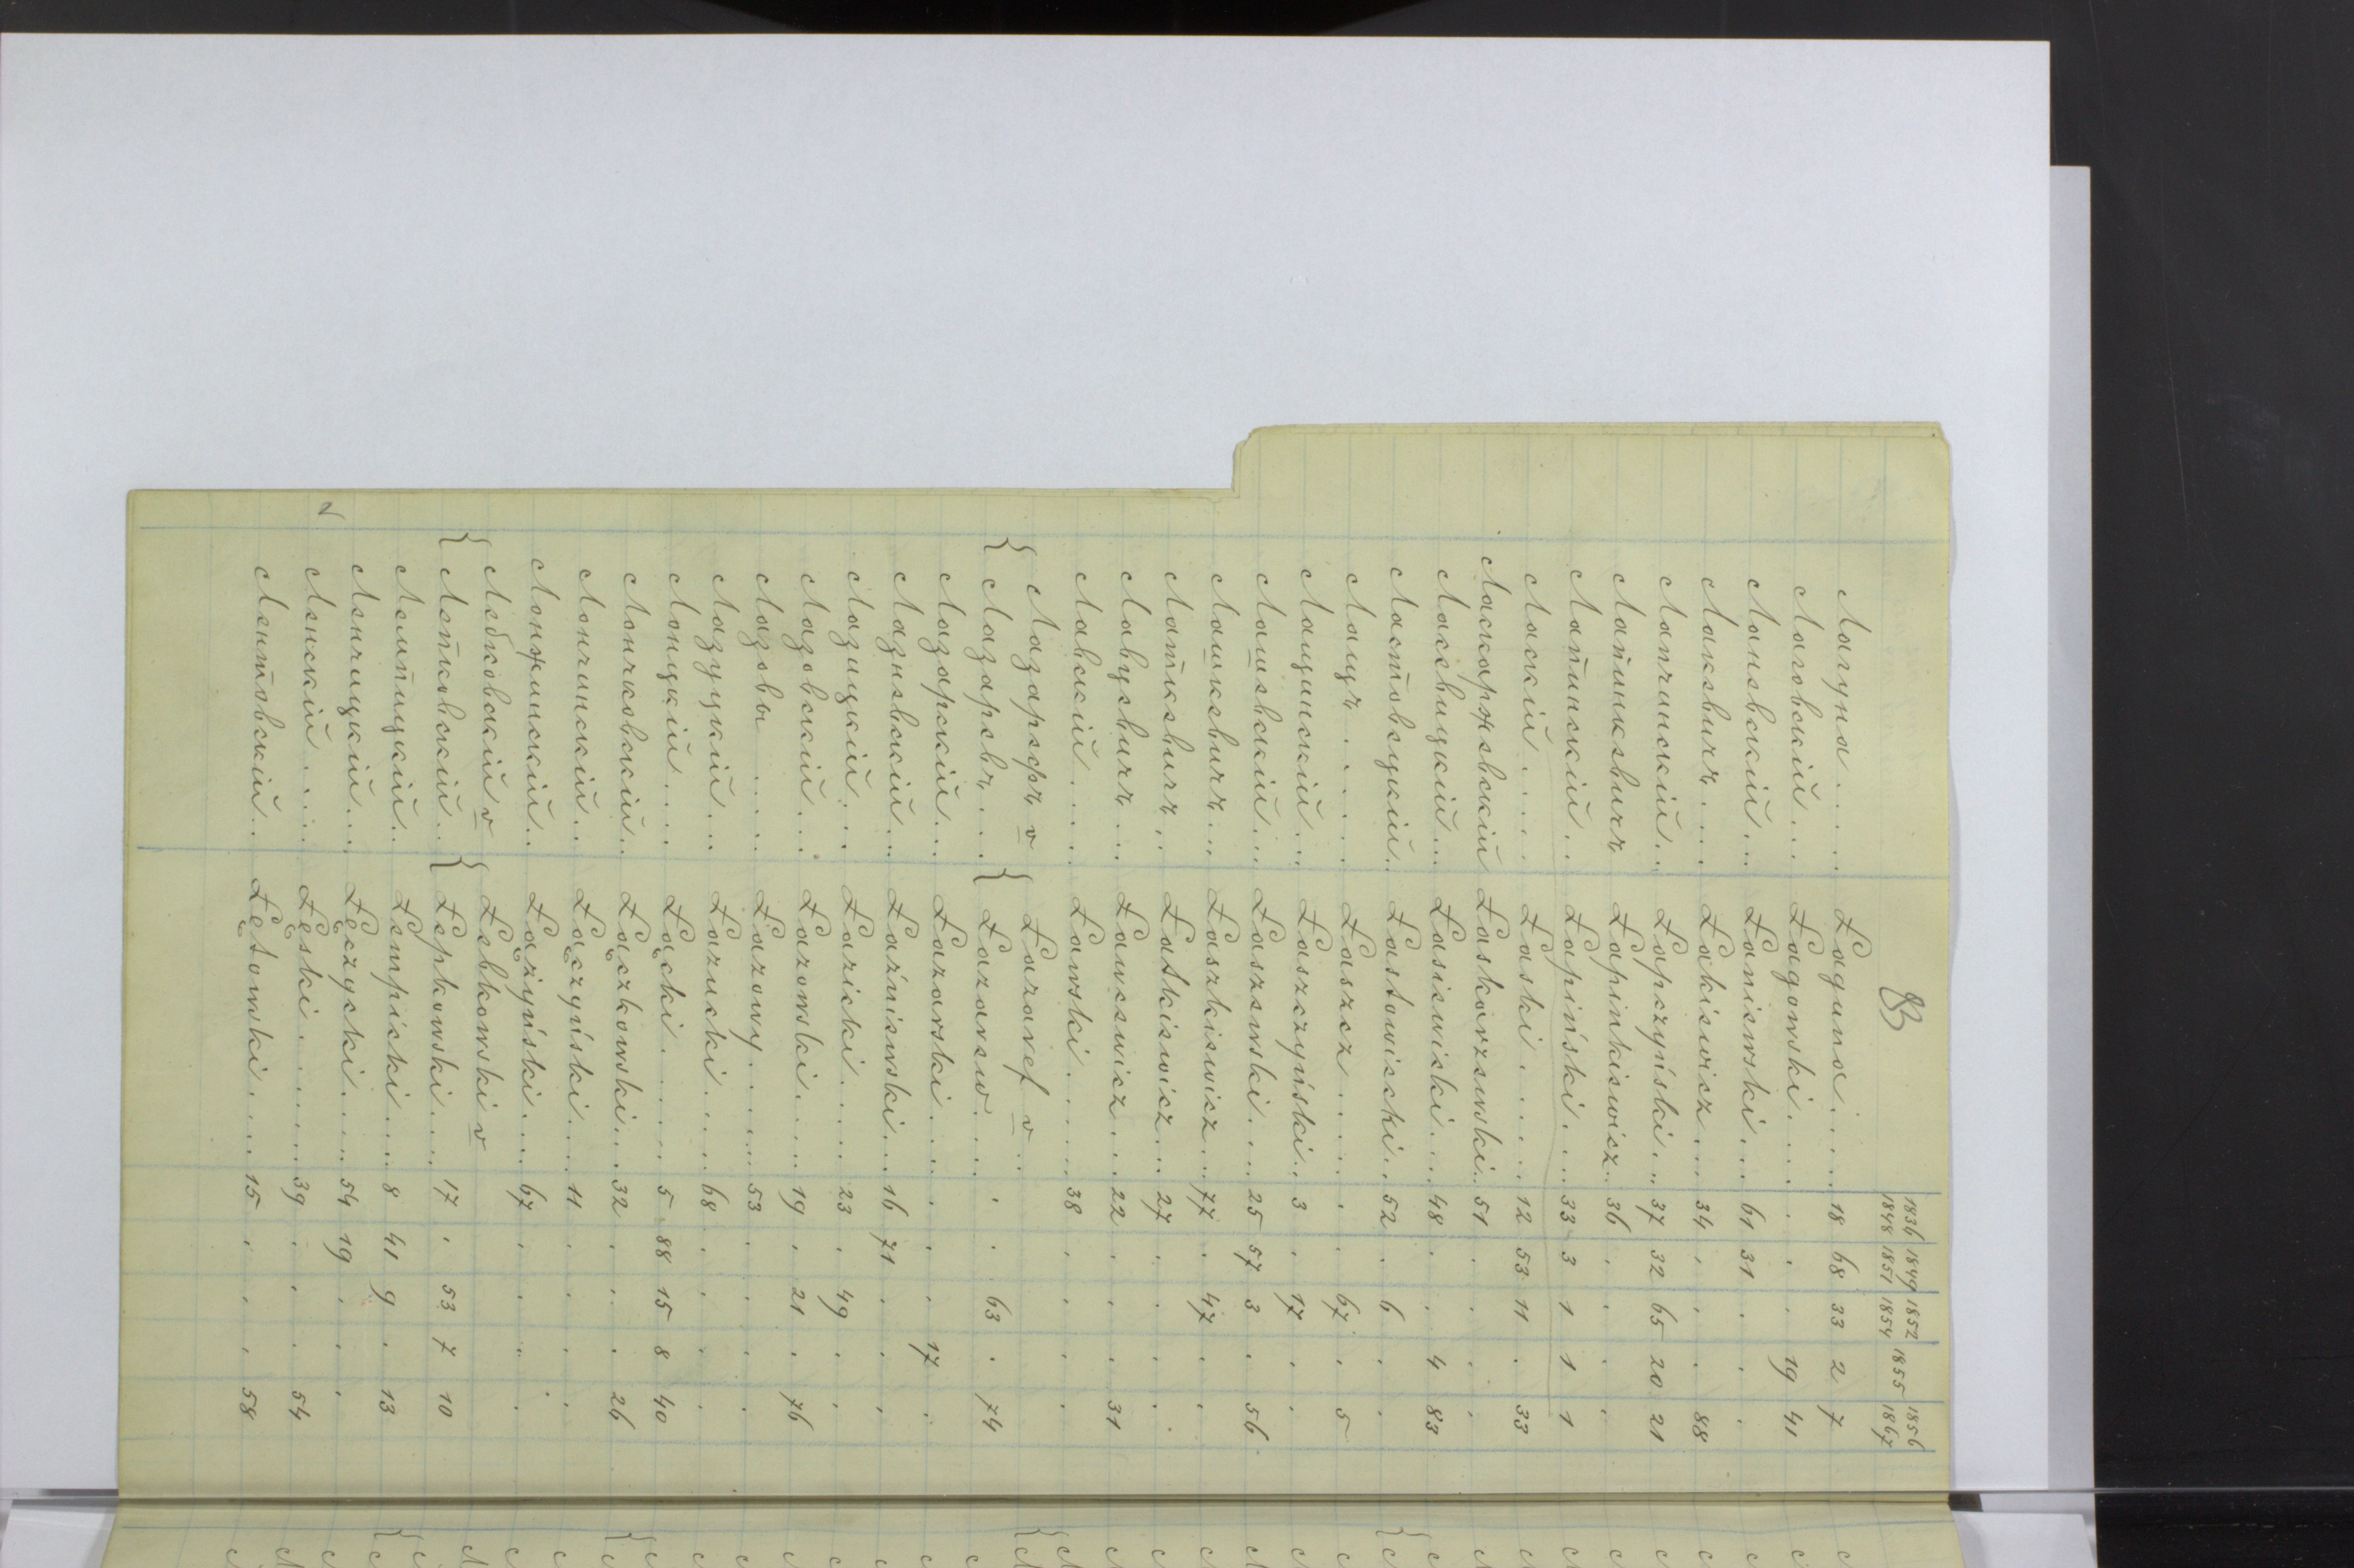 83
1836 1849 1852 1855 1856
1848 1851 1854 1867
Лагуна..... Łaguna..... 18 68 33 2 7
Лаговскій... Łagowski..... . . . 19 41
Лапевскій... Łaniewski... 61 31 . . .
Лакевичъ.... Łakiewicz... 34 . . . 88
Лапчинскій.. Łapczyński... 37 32 65 20 21
Лапинкевичъ Łapinkiewicz.. 36 . . . .
Лапинскій... Łapiński.... 33 3 1 1 1
Ласкій..... Łaski...... 12 53 11 . 33
Ласкаржевскій Łaskarzewski.. 51 . . . .
Ласевицкій... Łasiewicki.... 48 . . 4 83
Ластовецкій.. Łastowiecki.. 52 . 6 . .
Лащъ...... Łaszcz...... . . 67 . 5
Лащинскій... Łaszczyński.. 3 . 17 . .
Лашевскій... Łaszewski.... 25 57 3 . 56
Лашкевичъ... Łaszkiewicz.. 77 . 47 . .
Латкевичъ.. Łatkiewicz... 27 . . . .
Лавцевичъ... Ławcewicz.... 22 . . . 31
Лавскій..... Ławski...... 38 . . . .
{ Лазарефъ v { Łazaref v...
Лазаревъ.... Łazarew.... . . 63 . 74
Лазарскій... Łazarski..... . . . 17 .
Лазневскій.. Łaźniewski... 16 71 . . .
Лазицкій... Łazicki..... 23 . 49 . .
Лазовскій... Łazowski.... 19 . 21 . 76
Лазовы..... Łazowy...... 53 . . . .
Лазуцкій... Łazucki..... 68 . . . .
Лонцкій.... Łącki....... 5 88 15 8 40
Лончковскій.. Łączkowski... 32 . . . 26
Лончинскій.. Łączyński.... 11 . . . .
Лонжинскій.. Łążyński.... 67 . . . .
{ Лебковскій v { Łebkowski v
Лепковскій.. Łepkowski.... 17 . 53 7 10
Лемпицкій.. Łempicki.... 8 41 9 . 13
Ленчицкій... Łęczycki..... 54 19 . . .
Ленскій..... Łęski....... 39 . . . 54
Лентовскій.. Łętowski.... 15 . . . 58